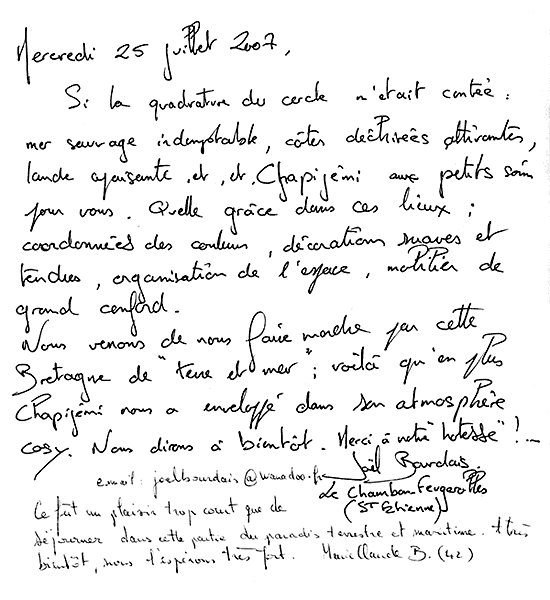 Mercredi 25 juillet 2007,
Si la quadrature du cercle m'était contée :
mer sauvage indomptable, côtes déchirées attirantes,
lande apaisante et, et, Chapijémi aux petits soins
pour vous. Quelle grâce dans ces lieux ;
coordonnées des couleurs, décorations suaves et
tendres, organisation de l'espace, mobilier de
grand confort.
Nous venons de nous faire mordre par cette
Bretagne de "terre et mer" ; voilà qu'en plus
Chapijémi nous a enveloppé dans son atmosphère
cosy. Nous dirons à bientôt. Merci à notre "hôtesse" !...
Joël Bourdais.
e.mail : joelbourdais@wanadoo.fr
Le Chambon Feugerolles
(St Etienne)
Ce fût un plaisir trop court que de
séjourner dans cette partie du paradis terrestre et maritime. A très
bientôt, nous l'espérons très fort. Marie Claude B. (42)